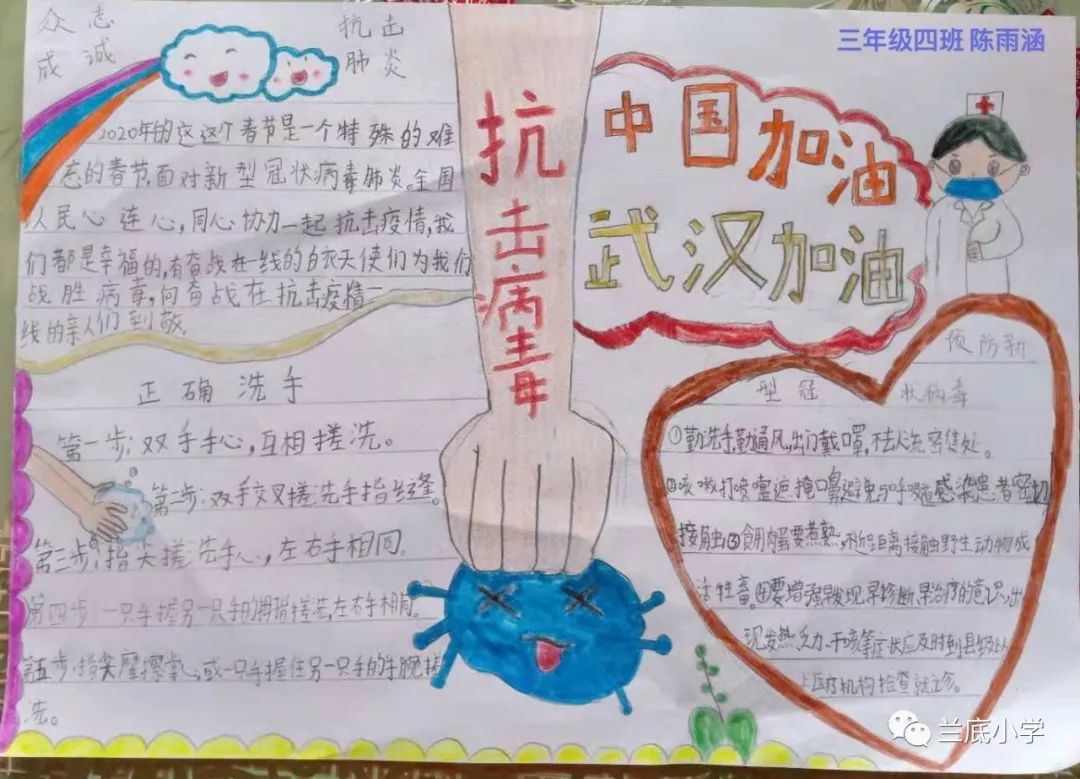 众志
成诚
抗击
肺炎
三年级四班 陈雨涵
2020年的这这个春节是一个特殊的难
忘的春节,面对新型冠状病毒肺炎。全国
人民心连心,同心协力一起抗击疫情,我
们都是幸福的,有奋战在一线的白衣天使们为我们
战胜病毒,向奋战在抗击疫情一
线的亲人们到敬。
抗击病毒
中国加油
武汉加油
正确洗手
第一步:双手手心,互相搓洗。
第二步:双手交叉搓洗手指缝。
第三步:指尖搓洗手心,左右手相同。
第四步 一只手握另一只手的拇指搓洗,左右手相同。
第五步:指尖摩擦掌心,或一只手握住另一只手的手腕搓
洗。
预防新
型冠状病毒
①勤洗手,勤通风,出门戴口罩,不去人流密集处。
②咳嗽打喷嚏遮掩口鼻,避免与呼吸道感染患者密切
接触③食用肉蛋要煮熟,不近距离接触野生动物或
活牲畜。④要增强早发现早诊断早治疗的意识,出
现发热乏力、干咳等症状应及时到县级以
上医疗机构检查就诊。
兰底小学